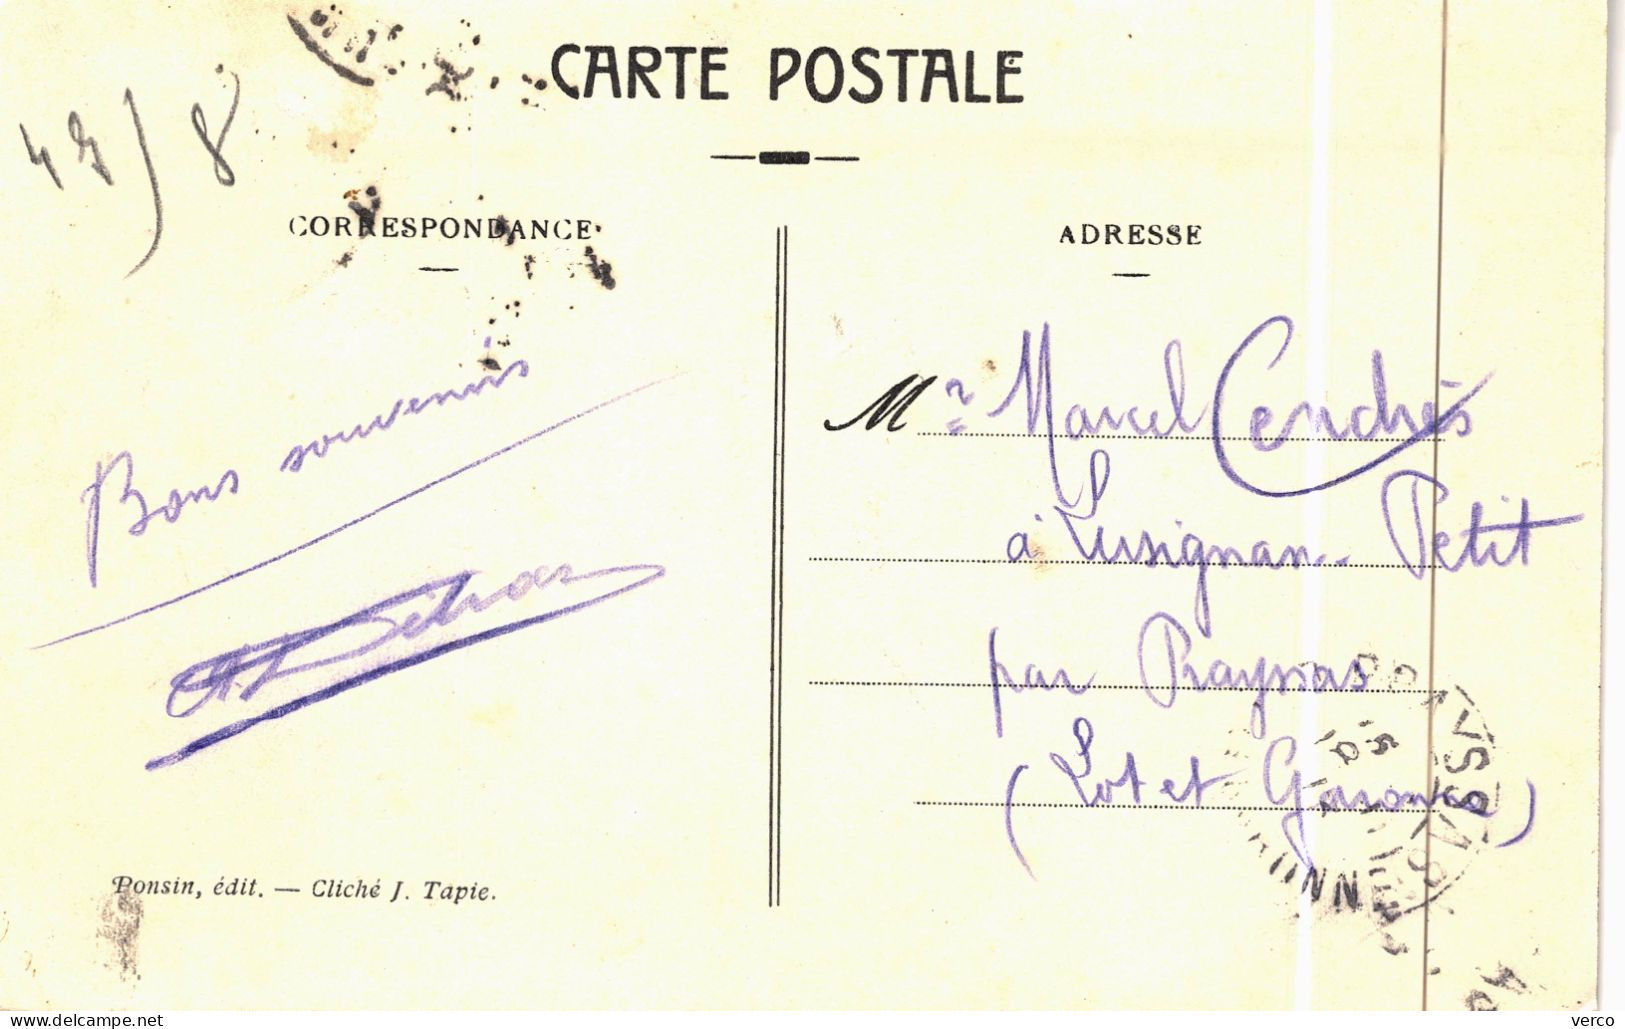 CARTE POSTALE
47/8
CORRESPONDANCE
Bons souvenirs
Ponsin, édit. — Cliché J. Tapie.
ADRESSE
Mr Marcel Cendrès
à Lusignan-Petit
par Prayssas
(Lot et Garonne)
www.delcampe.net
verco